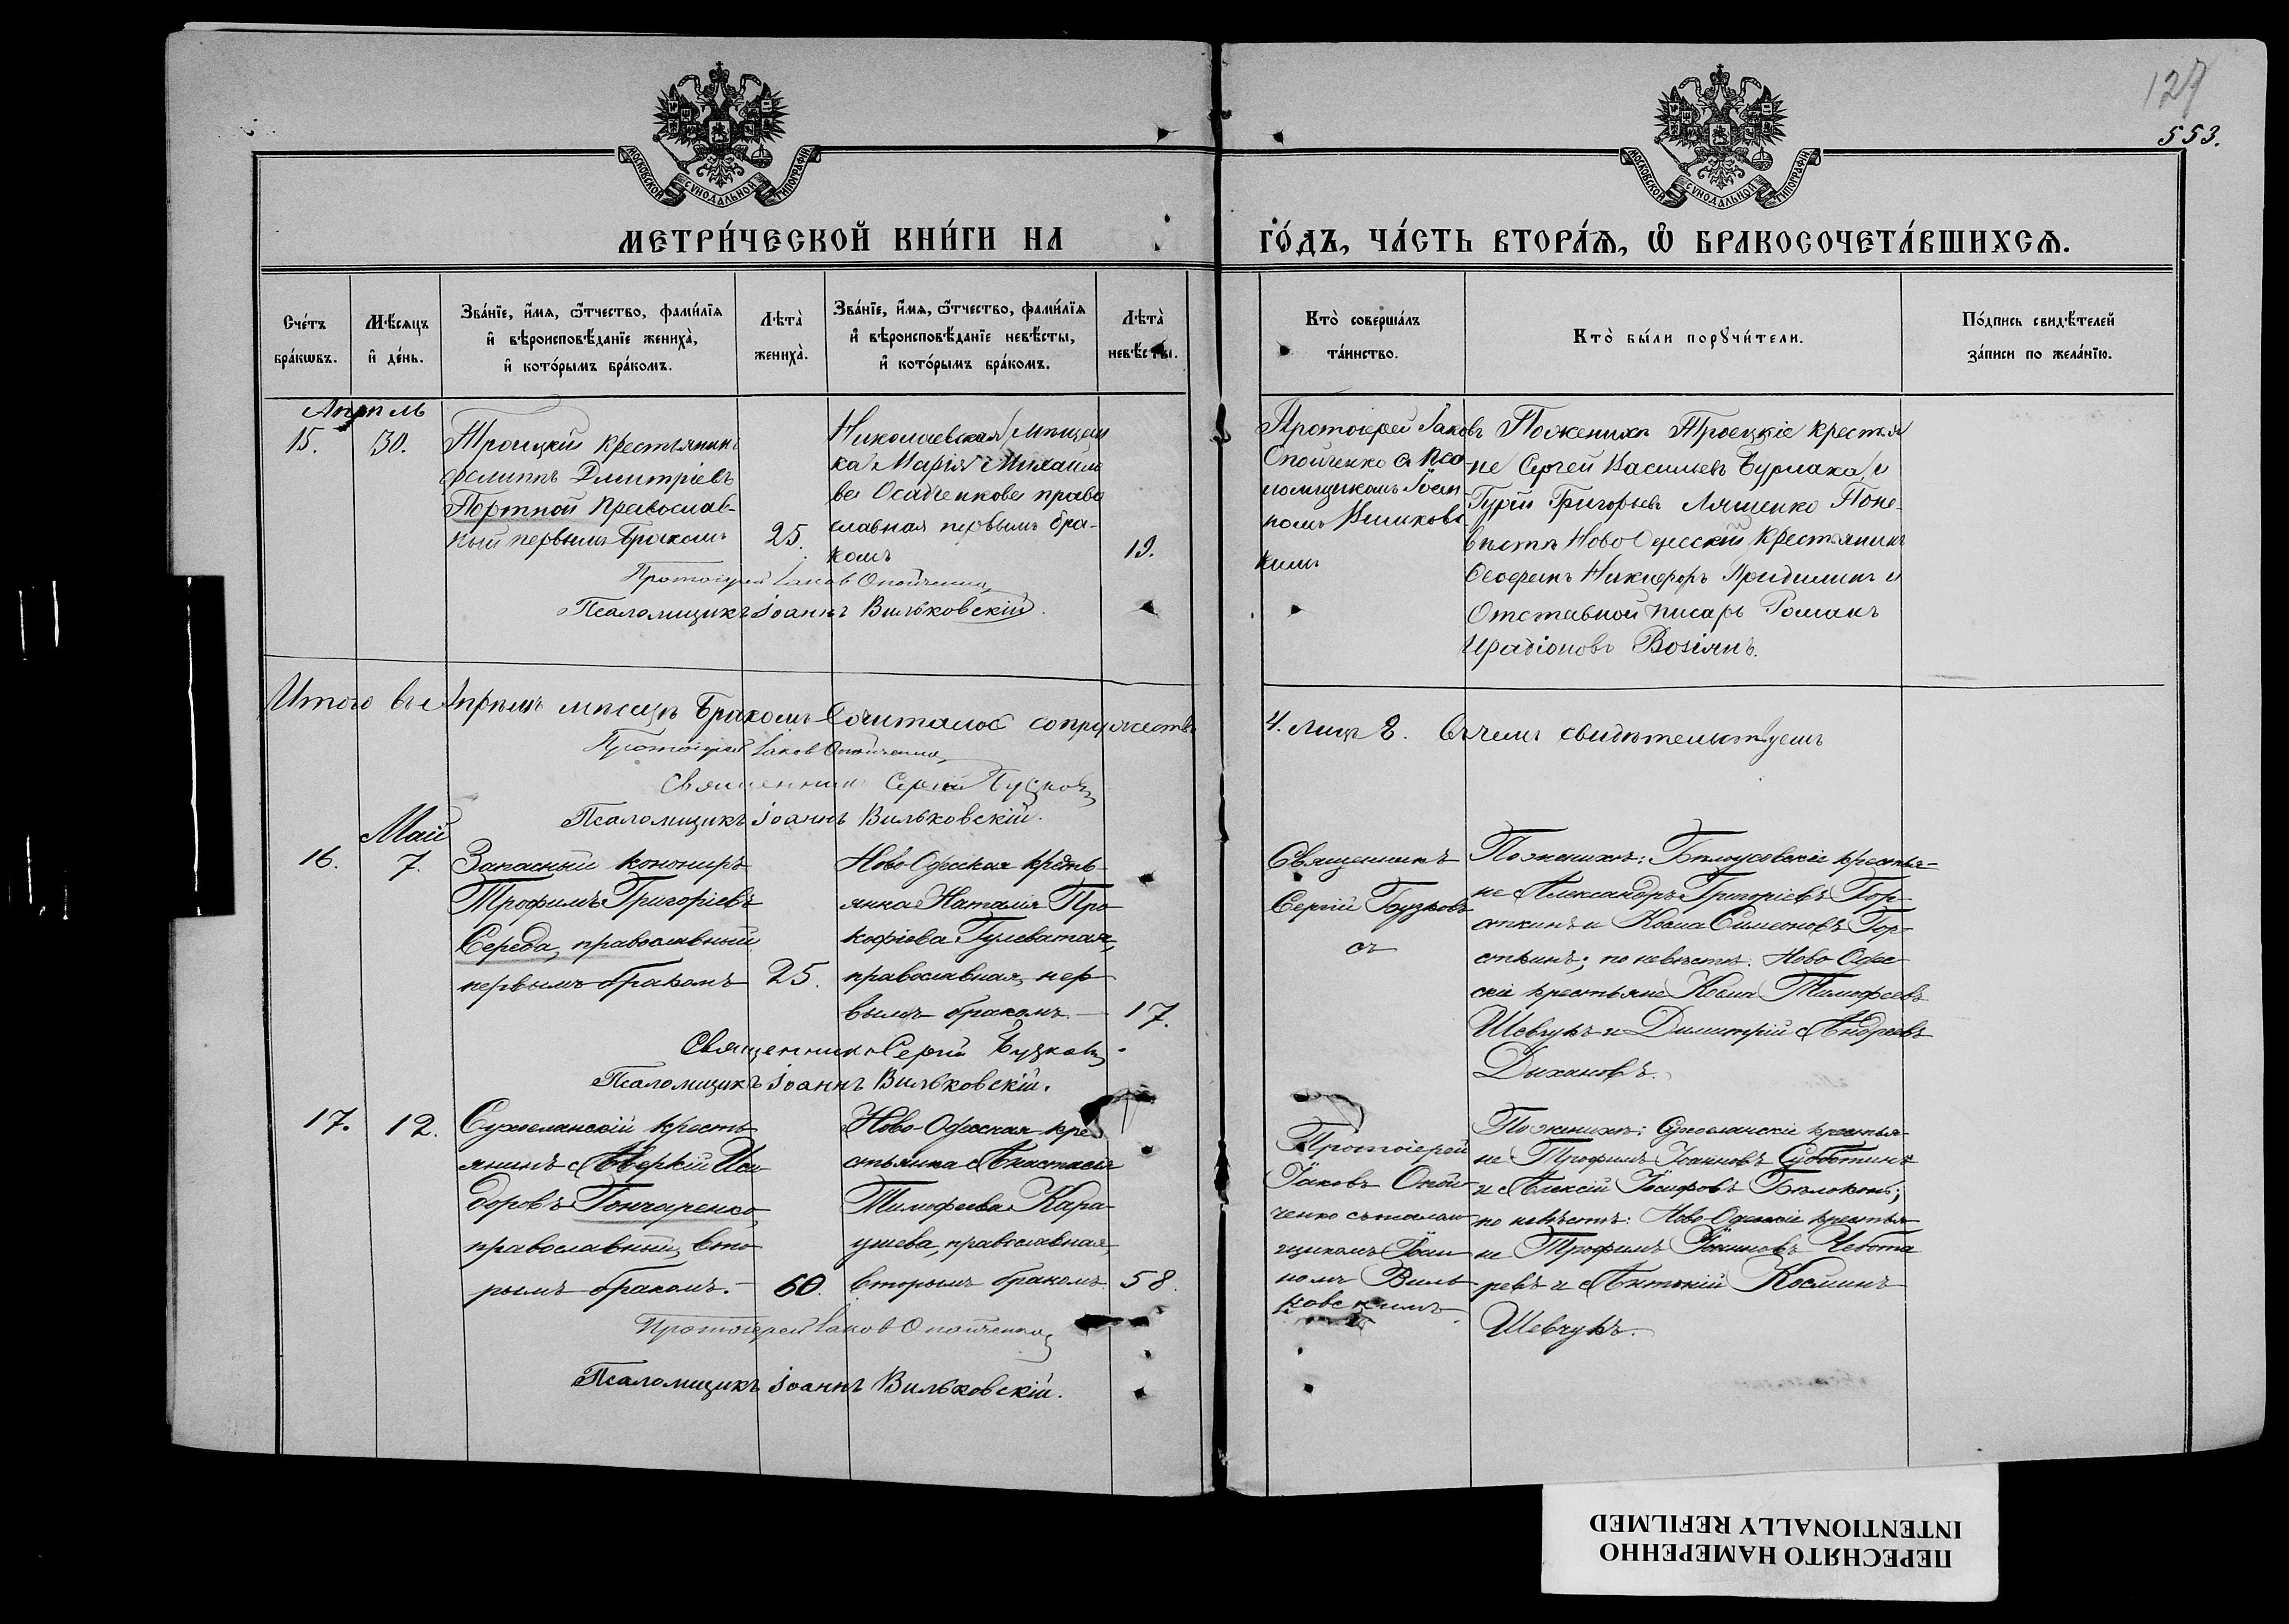 127
553.
МОСКОВСКОЙ СУНОДАЛЬНОЙ ТИПОГРАФІИ
МОСКОВСКОЙ СУНОДАЛЬНОЙ ТИПОГРАФІИ
МЕТРИ́ЧЕСКОЙ КНИ́ГИ НА ГО́ДЪ, ЧА́СТЬ ВТОРА́Ѧ, Ѡ҆ БРАКОСОЧЕТА́ВШИХСѦ.
Сче́тъ
бра́кѡвъ.
Мѣ́сяцъ
и҆ де́нь.
Зва́нїе, и҆́мѧ, ѻ҆́тчество, фами́лїѧ
и҆ вѣроисповѣ́данїе жениха̀,
и҆ кото́рымъ бра́комъ.
Лѣта̀
жениха̀.
Зва́нїе, и҆́мѧ, ѻ҆́тчество, фами́лїѧ
и҆ вѣроисповѣ́данїе невѣ́сты,
и҆ кото́рымъ бра́комъ.
Лѣта̀
невѣ́сты.
Кто̀ соверша́лъ
та́инство.
Кто̀ бы́ли порꙋчи́тели.
По́дпись свидѣ́телей
за́писи по жела́нїю.
Апрѣль
15.
30.
Троицкій крестьянинъ
Филиппъ Дмитріевъ
Портной Православ-
ный первымъ бракомъ
25.
Николаевская мѣщан
ка Марія Михайло
ва Осадченкова право
славная первымъ бра-
комъ
19.
Протоіерей Іаковъ
Опойченко съ псо
ломщикомъ Іоан
номъ Вильковс
кимъ
По женихѣ Троецкіе крестья
не Сергей Васильевъ Бурлака, и
Гурій Григорьевъ Ляшенко По не-
вѣстѣ Ново Одесскій Крестьянинъ
Никифоръ и
Отставной писарь Романъ
Возіянъ.
Протоіерей Іаковъ Опойченко
Псаломщикъ Іоаннъ Вильковскій.
Итого въ Апрѣлѣ мѣсяцѣ бракомъ сочиталось супружествъ
4. лицъ 8. въ чемъ свидѣтельствуемъ
Протоіерей Іаковъ Опойченко
Священникъ Сергій Бузковъ
Псаломщикъ Іоаннъ Вильковскій.
Май
16.
7.
Запасный конониръ
Трофимъ Григоріевъ
Середа, православный
первымъ бракомъ
25.
Ново-Одесская кресть-
янка Наталія Про-
кофіева Гулеватая,
православная, пер-
вымъ бракомъ.
17.
Священникъ
Сергій Бузковъ
съ
По женихѣ: Бѣлоусовскіе крестья-
не Александръ Григоріевъ Гор-
опкинъ и Косма Симеоновъ Гор-
опкинъ; по невѣстѣ: Ново-Одес-
скіе крестьяне Косма Тимофеевъ
Шевчукъ и Димитрій Андреевъ
Дихановъ.
Священникъ Сергій Бузковъ.
Псаломщикъ Іоаннъ Вильковскій.
17.
12.
Сухоеланскій кресть-
янинъ Аверкій Иси-
доровъ Гончаренко,
православный, вто-
рымъ бракомъ.
60.
Ново-Одесская кре-
стьянка Анастасія
Тимофеева Кара-
ушева, православная,
вторымъ бракомъ
58.
Протоіерей
Іаковъ Опой-
ченко съ псалом-
щикомъ Іоан-
номъ Виль-
ковскимъ.
По женихѣ: Сухоеланскіе крестья-
не Трофимъ Іоанновъ Субботинъ
и Алексій Іосифовъ Бѣлоконь;
по невѣстѣ: Ново-Одесскіе крестья-
не Трофимъ Іоанновъ Чебота-
ревъ и Антоній Косминъ
Шевчукъ.
Протоіерей Іаковъ Опойченко
Псаломщикъ Іоаннъ Вильковскій.
ПЕРЕСНЯТО НАМЕРЕННО
INTENTIONALLY REFILMED